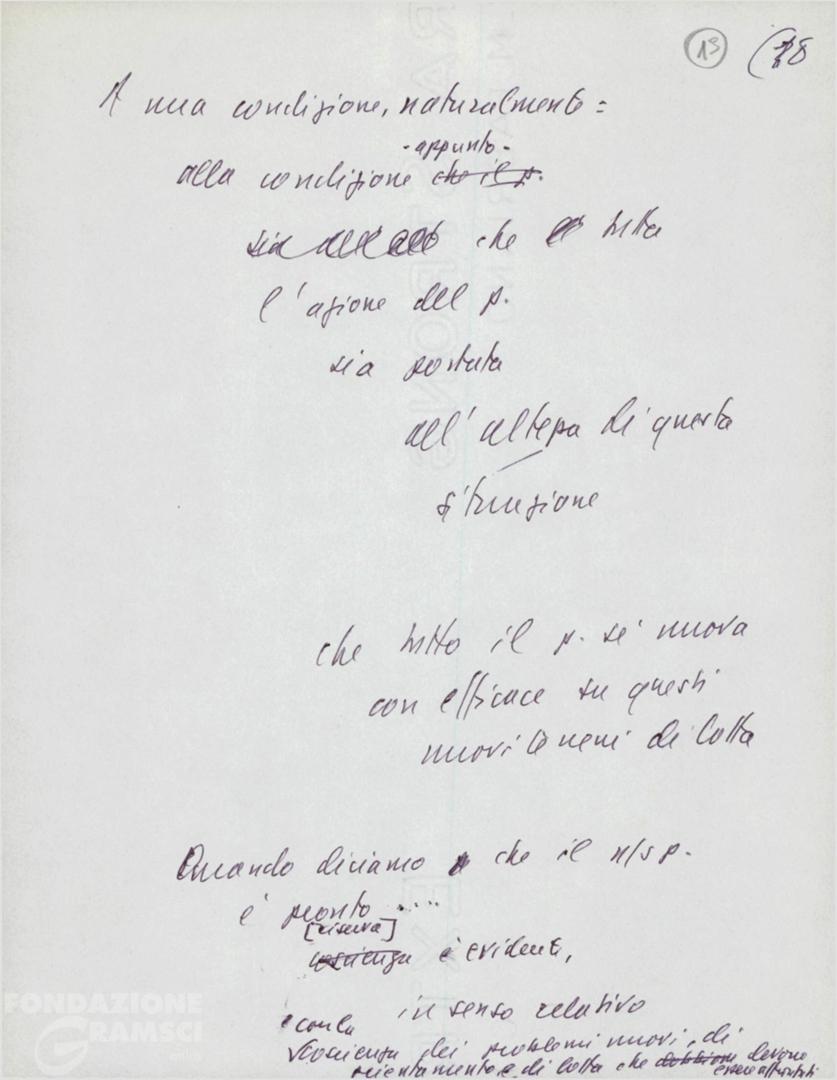 13 (78
A una condizione, naturalmente =
- appunto -
alla condizione che il p.
sia che tutta
l'azione del p.
sia portata
all'altezza di questa
situazione
che tutto il p. si muova
con efficace su questi
nuovi terreni di lotta
Quando diciamo che il n/s p.
è pronto ....
[riserva]
coscienza è evidente,
in senso relativo
e con la
coscienza dei problemi nuovi, di
orientamento e di lotta che debbono devono
essere affrontati
FONDAZIONE
GRAMSCI